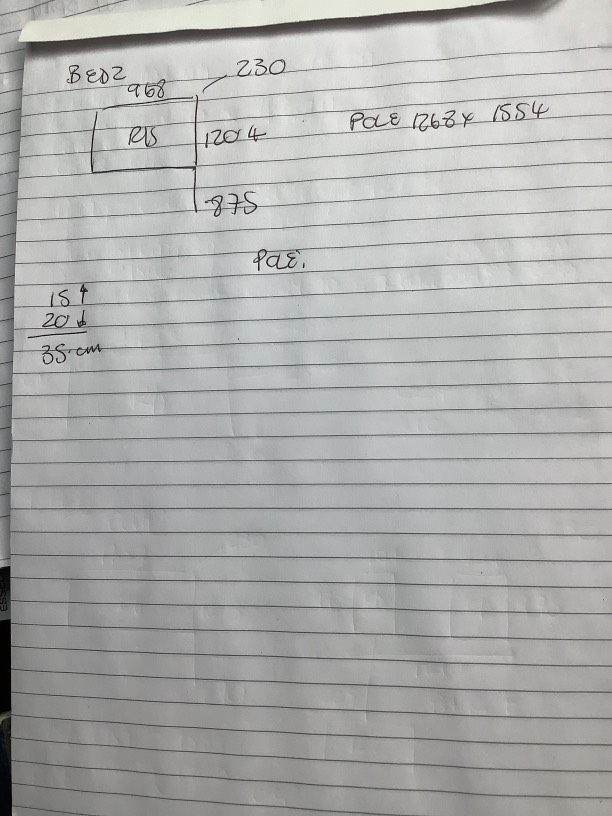 BED2
968
230
RB
1204
POLE 1268 x 1554
875
POLE.
15↑
20↓
35.cm